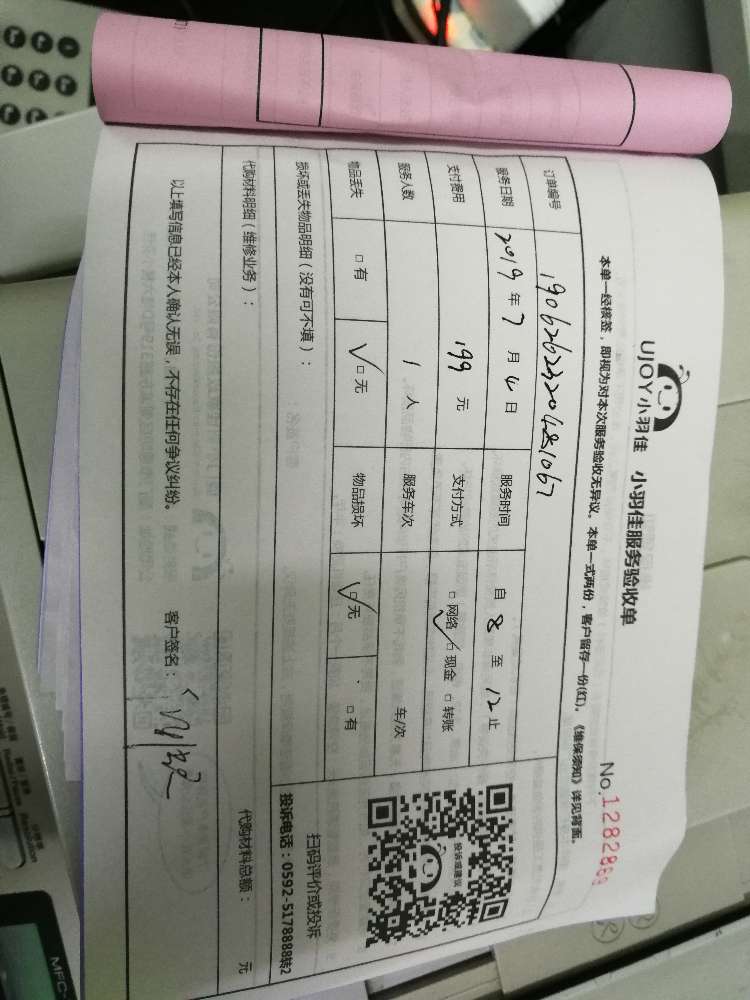 UJOY小羽佳 小羽佳服务验收单
No.1282869
本单一经核签，即视为对本次服务验收无异议。本单一式两份，客户留存一份(红)。《维保须知》详见背面。
订单编号
服务日期 2019年7月4日 服务时间 自8至12止
支付费用 199元 支付方式 □网络 ☑现金 □转账
服务人数 1人 服务车次 车/次
物品丢失 □有 ☑无 物品损坏 ☑无 □有
损坏或丢失物品明细（没有可不填）：
投诉或建议
扫码评价或投诉
投诉电话：0592-5178888转2
代购材料明细（维修业务）： 代购材料总额： 元
以上填写信息已经本人确认无误，不存在任何争议纠纷。 客户签名：
MFC-